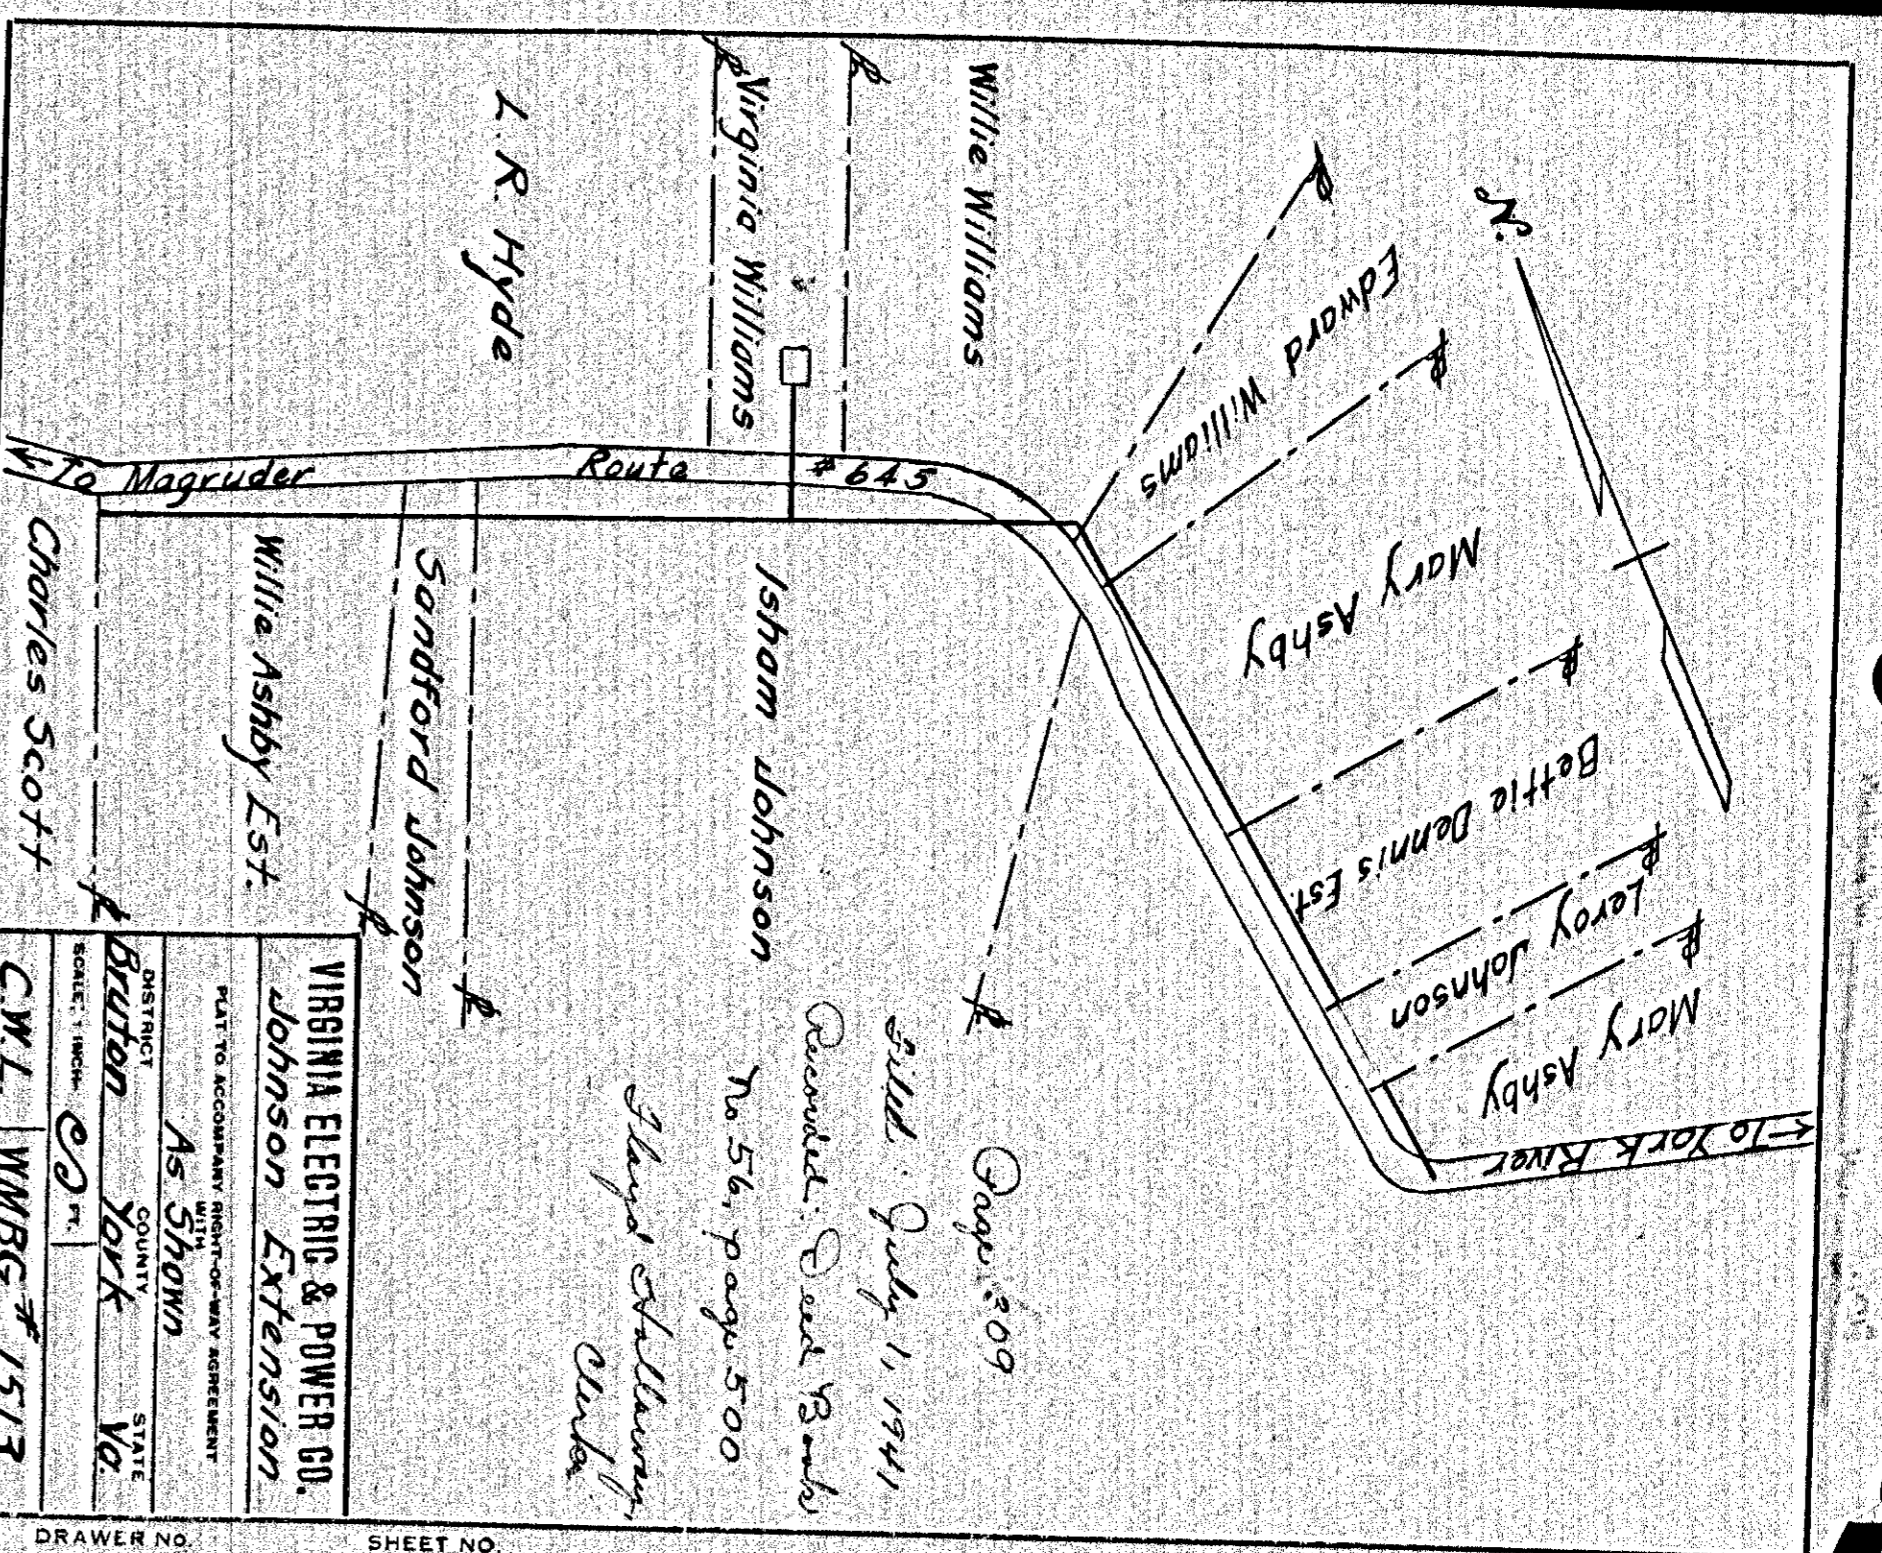 N.
Willie Williams
Virginia Williams
L. R. Hyde
Edward Williams
Mary Ashby
Bettie Dennis Est.
Leroy Johnson
Mary Ashby
To York River
To Magruder Route #645
Isham Johnson
Sandford Johnson
Willie Ashby Est.
Charles Scott
Page: 209
Filed: July 1, 1941
Recorded: Deed Book
No 56, page 500
Floyd Holloway,
Clerk.
VIRGINIA ELECTRIC & POWER CO.
Johnson Extension
PLAT TO ACCOMPANY RIGHT-OF-WAY AGREEMENT
WITH
As Shown
DISTRICT COUNTY STATE
Bruton York Va.
SCALE: 1 INCH= FT.
C.W.L. WMBG # 1513
DRAWER NO. SHEET NO.